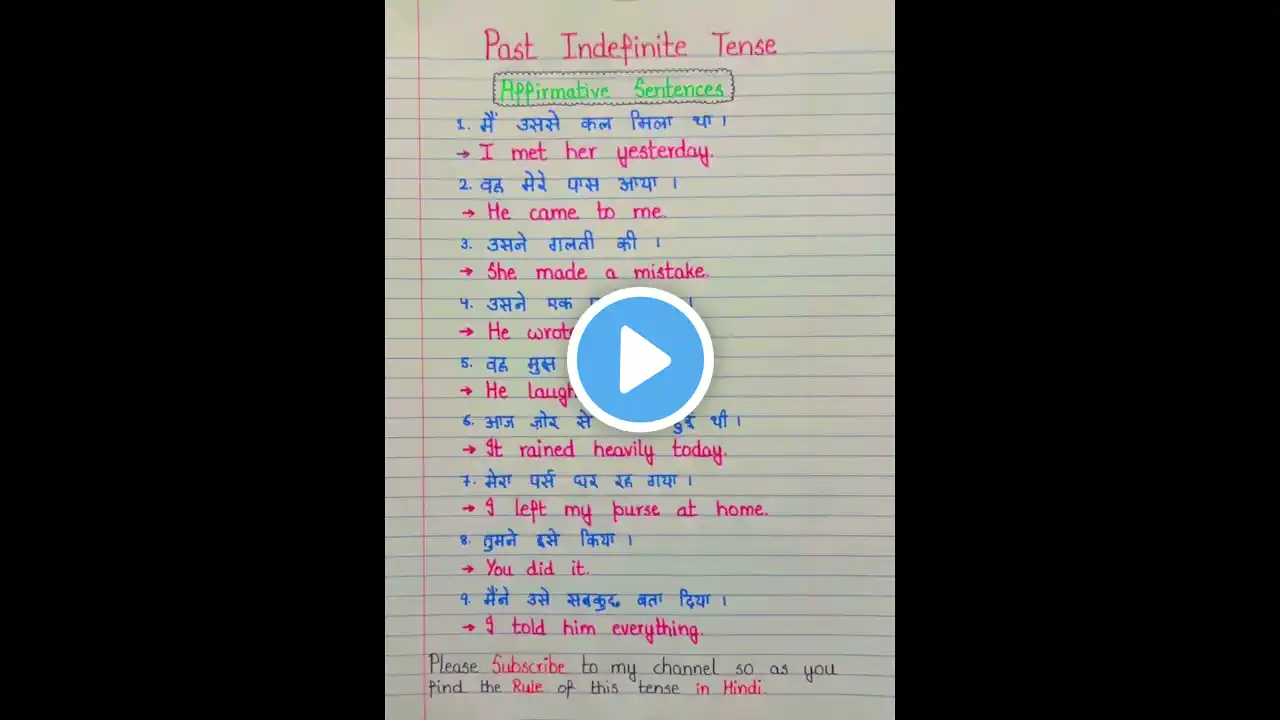 Past Indefinite Tense
Affirmative Sentences
1. मैं उससे कल मिला था।
→ I met her yesterday.
2. वह मेरे पास आया ।
→ He came to me.
3. उसने गलती की ।
→ She made a mistake.
4. उसने एक
→ He wrote
5. वह मुझ
→ He laugh
6. आज ज़ोर से हुई थी।
→ It rained heavily today.
7. मेरा पर्स घर रह गया।
→ I left my purse at home.
8. तुमने इसे किया ।
→ You did it.
9. मैंने उसे सबकुछ बता दिया ।
→ I told him everything.
Please Subscribe to my channel so as you
find the Rule of this tense in Hindi.